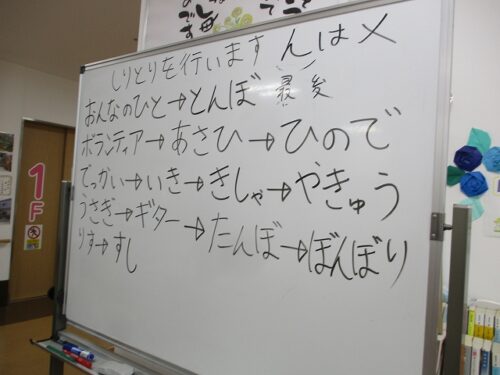 しりとりを行います んは×
最後
おんなのひと→とんぼ
ボランティア→あさひ→ひので
でっかい→いき→きしゃ→やきゅう
うさぎ→ギター→たんぼ→ぼんぼり
りす→すし
1F